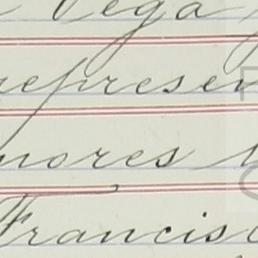 Vega y
represen
nores
Francisc